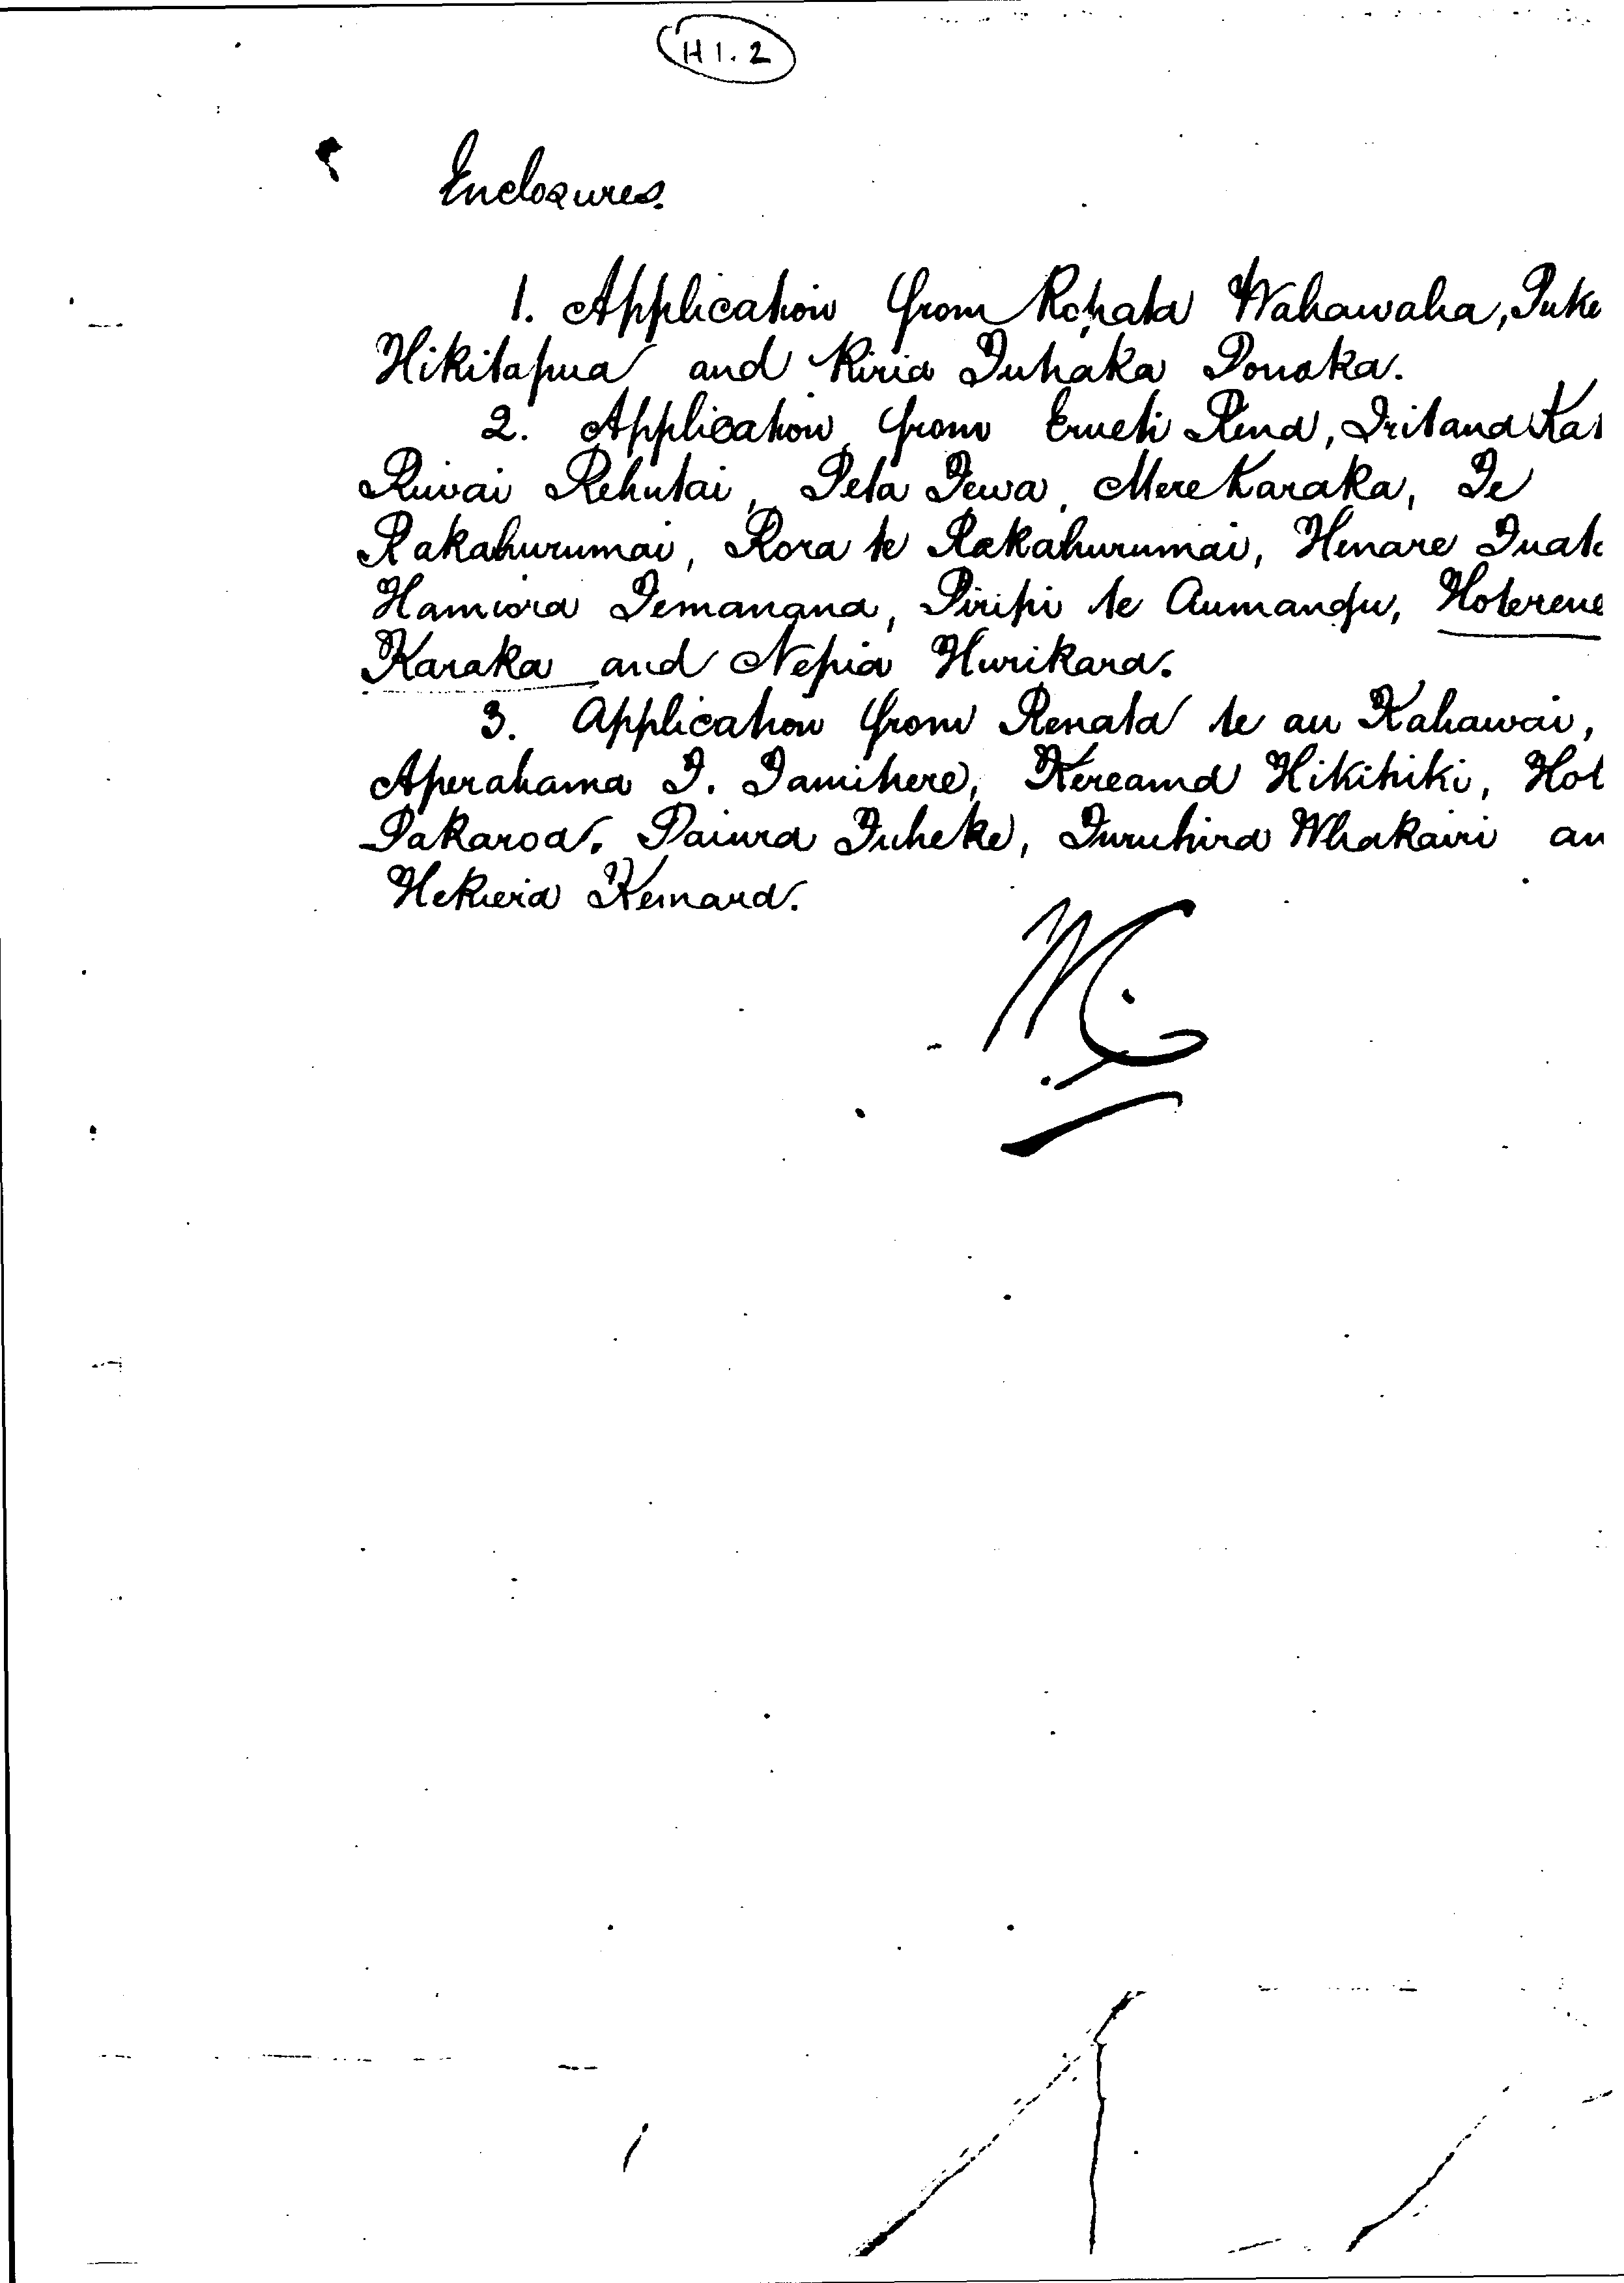 H1.2
Enclosures.
1. Application from Ropata Wahawaha,
Hikitapua and Kiria Tuhaka Ponoka.
2. Application from Erueti Rena,
Ruwai Rehutai, Peta Tewa, Mere Karaka, Te
Rakahurumai, Rora te Rakahurumai, Henare
Hamiora Temanana, Piripi te Aumangu, Hoterene
Karaka and Nepia Hurikara.
3. Application from Renata te au Kahawai,
Aperahama T. Tamihere, Kereama Hikitiki,
Pakaroa. Paiura Tuheke, Turuhira Whakairi
Hekiera Kemara.